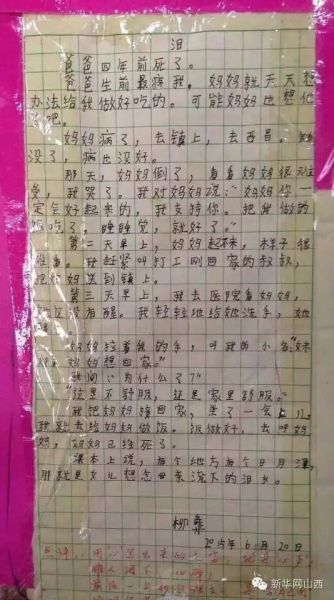 泪
爸爸四年前死了。
爸爸生前最疼我。妈妈就天天想
办法给我做好吃的。可能妈妈也想他
了吧。
妈妈病了，去镇上，去西昌。
没了，病也没好。
那天，妈妈倒了，看看妈妈很难
受，我哭了。我对妈妈说：“妈妈你一
定会好起来的，我支持你。把我做的
饭吃了，睡睡觉，就好了。”
第二天早上，妈妈起不来，样子很
难看。我赶紧叫打工刚回家的叔叔，
把妈妈送到镇上。
第三天早上，我去医院看妈妈，
她还没有醒。我轻轻地给她洗手，她
妈妈拉着我的手，叫我的小名
妈妈想回家。”
我问：“为什么了？”
“这里不舒服，还是家里舒服。”
我把妈妈接回家，坐了一会儿，
我就去给妈妈做饭。饭做好，去叫妈
妈，妈妈已经死了。
课本上说，有个地方有个日月潭，
那就是女儿想念母亲流下的泪水。
柳彝
2015年6月20日
新华网山西